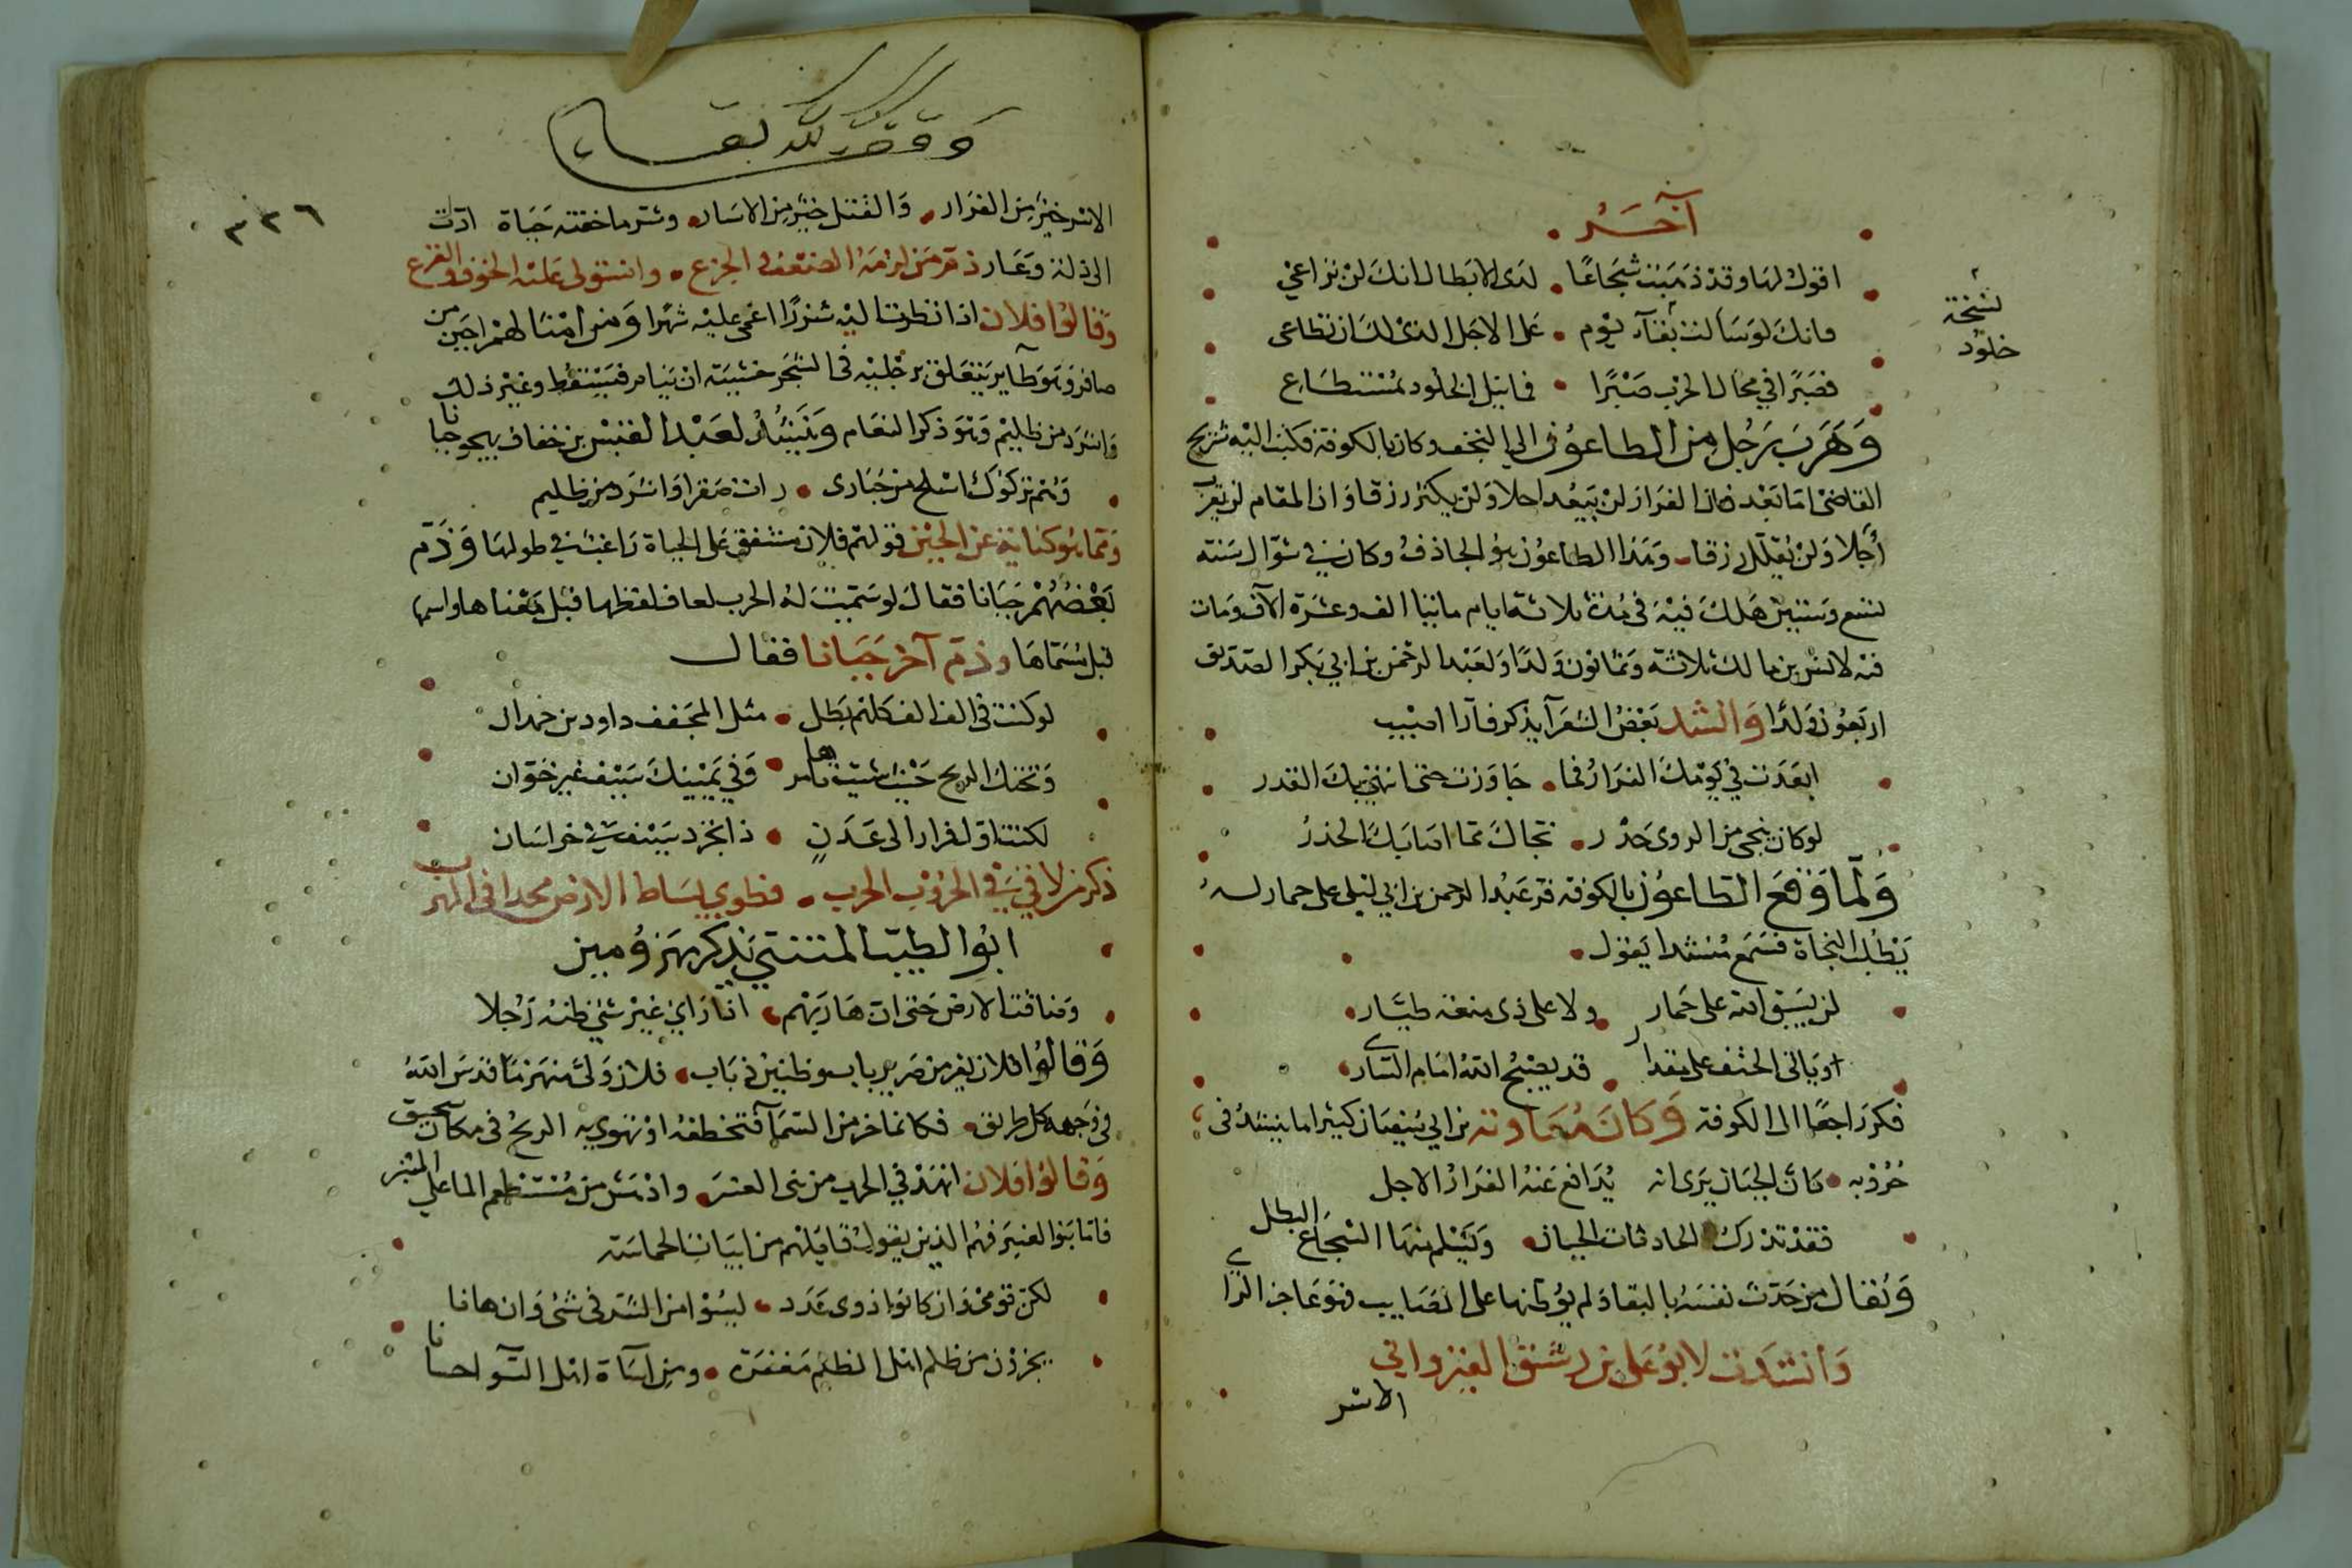 آخر
اقول لها وقد ذهبت شجاعا • لدى الابطال انك لن تراعي
فانك لو سألت بقآء يوم • على الاجل الذى لك لن تطاعى
نسخة
خلود
فصبرا في مجال الحرب صبرا • فما نيل الخلود بمستطاع
وهرب رجل من الطاعون الى النجف وكان بالكوفة فكتب اليه شريح
القاضى اما بعد فان الفرار لن يبعد اجلا ولن يكثر رزقا وان المقام لن يقرب
أجلا ولن يقلل رزقا وهذا الطاعون هو الجارف وكان في شوال سنة
تسع وستين هلك فيه في مدة ثلاثة ايام مايتا الف وعشرة آلاف ومات
فيه لانس بن مالك ثلاثة وثمانون ولدا ولعبد الرحمن بن ابي بكر الصديق
اربعون ولدا وانشد بعض الشعرآ يذكر فارا اصيب
ابعدت في يومك الفرار فما • جاوزت حتى انتهى بك القدر
لو كان ينجى من الردى حذر • نجاك مما اصابك الحذر
ولما وقع الطاعون بالكوفة فر عبد الرحمن بن ابي ليلى على حمار له
يطلب النجاة فسمع منشدا يقول •
لن يسبق الله على حمار • ولا على ذى منعة طيار •
او ياتى الحتف على مقدار • قد يصبح الله امام السارى •
فكر راجعا الى الكوفة وكان معاوية بن ابي سفيان كثيرا ما ينشد فى
حروبه • كان الجبان يرى انه يدافع عنه الفرار الاجل
فقد تدرك الحادثات الجبان • ويسلم منها الشجاع البطل
ويقال من حدث نفسه بالبقا ولم يوطنها على المصايب فهو عاجز الراي
وانشدت لابو على بن رشيق القيرواني
الاسر

وقف لله تعالى
٣٢٦
الاسر خير من الفرار • والقتل خير من الاسار • وشر ما خفته حياة ادت
الى ذلة وعار ذم من لزمه الضعف و الجزع • واستولى عليه الخوف والفزع
وقالوا فلان اذا نظرت اليه شزرا اغمى عليه شهرا ومن امثالهم اجبن من
صافر وهو طآير يتعلق برجليه فى الشجر خشية ان ينام فيسقط وغير ذلك
واشرد من ظليم وهو ذكر النعام وينشد لعبد القيس بن خفاف يهجو جبانا
وهم تركوك اسلح من حبارى • رات صقرا واشرد من ظليم
ومما هو كناية عن الجبن قولهم فلان مشفق على الحياة راغب في طولها وذم
بعضهم جبانا فقال لو سميت له الحرب لعاف لفظها قبل معناها واسمها
قبل مسماها وذم آخر جبانا فقال
لو كنت فى الف الف كلهم بطل • مثل المجفف داود بن حمدان
وتحتك الريح حيث شيت تامرها • وفي يمينك سيف غير خوان
لكنت اول فرار الى عدن • اذا تجرد سيف في خراسان
ذكر من لاقى في الحروب الحرب • فطوي بساط الارض مجدا فى الهرب
ابو الطيب المتنبي يذكر مهزومين
وضاقت الارض حتى ان هاربهم • اذا راي غير شئ ظنه رجلا
وقالوا فلان يفر من صرير باب وطنين ذباب • فلان ولى منهزما قد سد الله
فى وجهه كل طريق • فكانما خر من السمآ فتخطفه او تهوي به الريح فى مكان سحيق
وقالوا فلان انهد في الحرب من بنى العنبر • وادهش من مستطعم الما على المنبر
فاما بنو العنبر فهم الذين يقول قايلهم من ابيات الحماسة
لكن قومى وان كانوا ذوى عدد • ليسوا من الشر فى شئ وان هانا
يجزون من ظلم اهل الظلم مغفرة • ومن اسآة اهل السوء احسانا